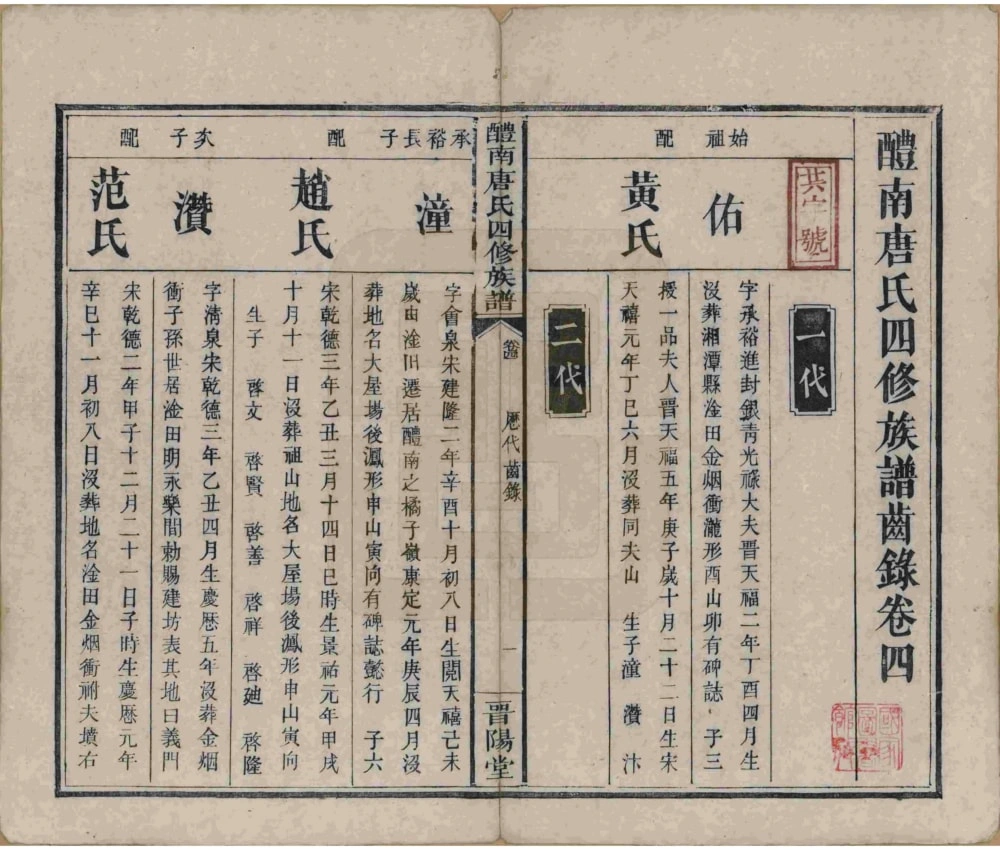 醴南唐氏四修族譜齒錄卷四
一代
始祖
佑
字承裕進封銀青光祿大夫晋天福二年丁酉四月生
沒葬湘潭縣淦田金烟衝瀧形酉山卯有碑誌 子三
配
黃氏
授一品夫人晋天福五年庚子歲十月二十二日生宋
天禧元年丁巳六月沒葬同夫山 生子潼 灒 汴
二代
醴南唐氏四修族譜
卷四
歷代齒錄
一
晋陽堂
承裕長子
潼
字會泉宋建隆二年辛酉十月初八日生閱天禧己未
歲由淦田遷居醴南之橘子嶺康定元年庚辰四月沒
葬地名大屋場後鳳形申山寅向有碑誌懿行 子六
配
趙氏
宋乾德三年乙丑三月十四日巳時生景祐元年甲戌
十月十一日沒葬祖山地名大屋場後鳳形申山寅向
生子 啓文 啓賢 啓善 啓祥 啓廸 啓隆
次子
灒
字清泉宋乾德三年乙丑四月生慶歷五年沒葬金烟
衝子孫世居淦田明永樂間勅賜建坊表其地曰義門
配
范氏
宋乾德二年甲子十二月二十一日子時生慶歷元年
辛巳十一月初八日沒葬地名淦田金烟衝祔夫墳右